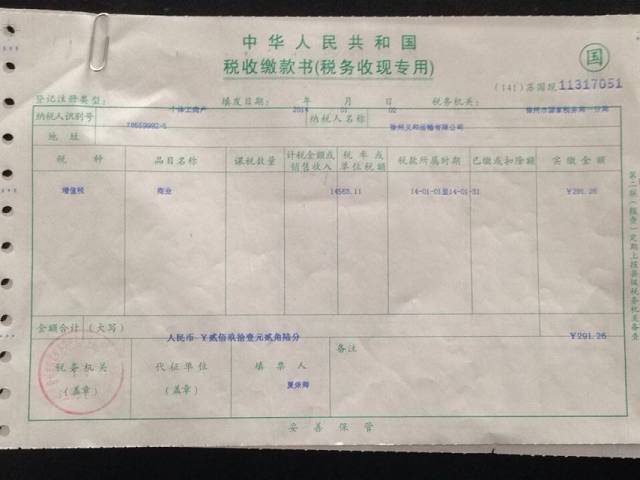 中华人民共和国
税收缴款书(税务收现专用)
国
(141)苏国现11317051
登记注册类型: 个体工商户 填发日期: 2014 年 01 月 02 日 税务机关: 徐州市国家税务局一分局
纳税人识别号 78699902-5 纳税人名称 徐州义和运输有限公司
地址
税种 品目名称 课税数量 计税金额或销售收入 税率或单位税额 税款所属时期 已缴或扣除额 实缴金额
增值税 商业 14563.11 14-01-01至14-01-31 ¥291.26
金额合计 (大写) 人民币-¥贰佰玖拾壹元贰角陆分 ¥291.26
税务机关 (盖章) 代征单位 (盖章) 填票人 备注
妥善保管